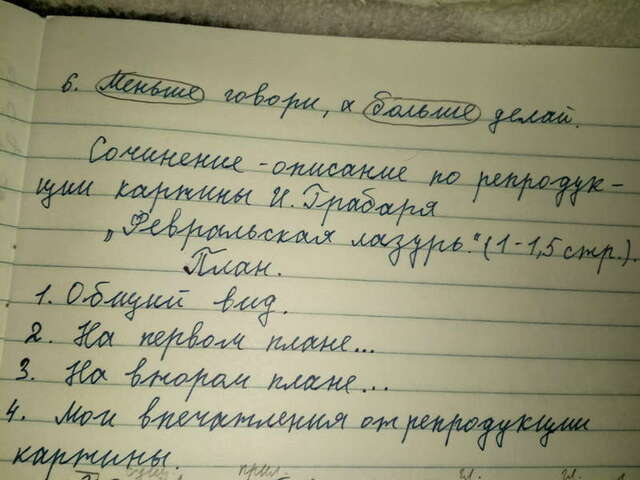 6. Меньше говори, а больше делай.
Сочинение-описание по репродук-
ции картины И. Грабаря
„Февральская лазурь." (1-1,5 стр.).
План.
1. Общий вид.
2. На первом плане...
3. На втором плане...
4. Мои впечатления от репродукции
картины.
прил. гл. гл.